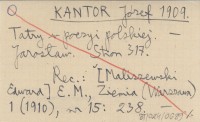 KANTOR Józef 1909.
Tatry w poezji polskiej.
Jarosław. Stron 317.
Rec.: [Maliszewski
Edward] E. M., Ziemia (Warszawa)
1 (1910), nr 15: 238. —